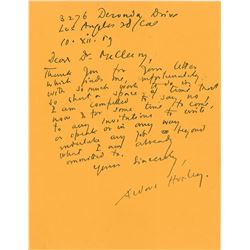 3276 Deronda Drive
Los Angeles 28/Cal
10.XII.59
Dear Dr. McCleery,
Thank you for your letter
which finds me, unfortunately,
with so much work to do in
so short a space of time that
I am compelled to say no
now & for some time to come,
to any invitations to write,
or speak or in any way
undertake any job beyond
what I am already
committed to.
Yours sincerely,
Aldous Huxley